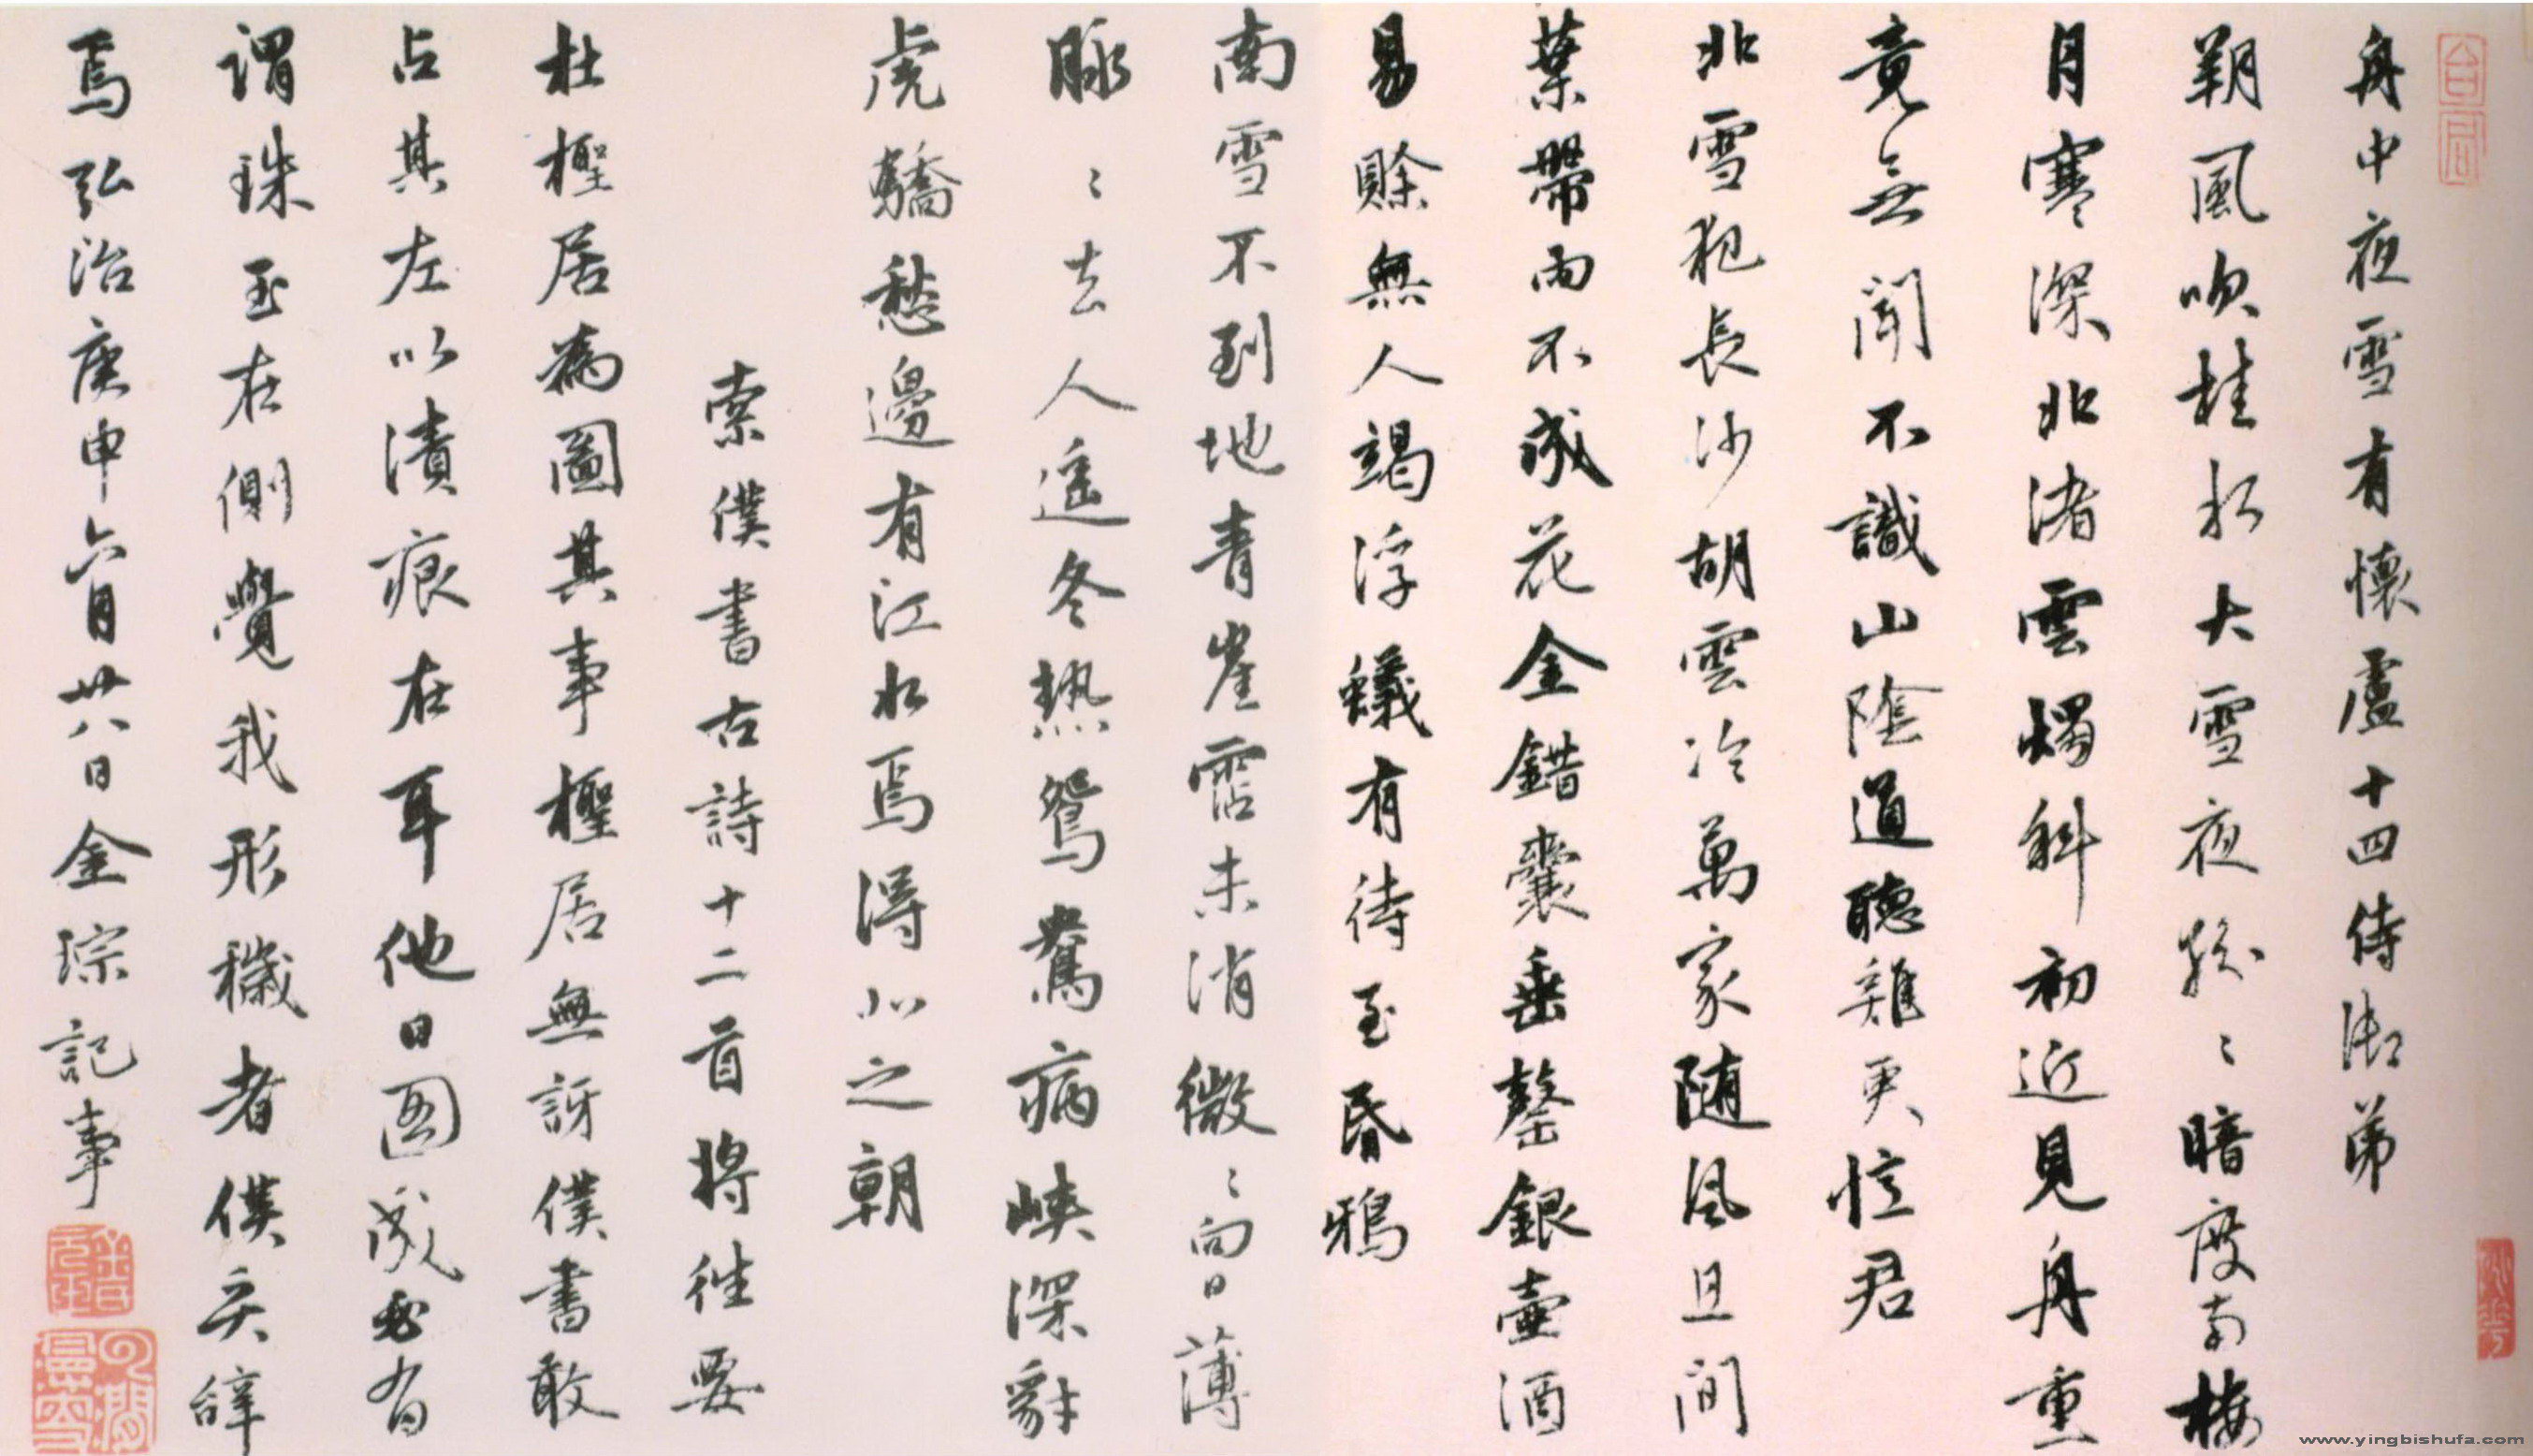 舟中夜雪有懷盧十四侍御弟
朔風吹桂水大雪夜紛〻暗度南樓
月寒深北渚雲燭斜初近見舟重
竟無聞不識山陰道聽雞更憶君
北雪犯長沙胡雲冷萬家随風且間
葉帶雨不成花金錯囊垂罄銀壺酒
易賒無人竭浮蟻有待至昏鴉
南雪不到地青崖霑未消微〻向日薄
脉〻去人遥冬熱鴛鴦病峽深豺
虎驕愁邊有江水焉得北之朝
索僕書古詩十二首將徃要
杜檉居為圖其事檉居無訝僕書敢
占其左以漬痕在耳他日圖成必有
謂珠玉在側覺我形穢者僕奚辭
焉弘治庚申六月廿八日金琮記事
www.yingbishufa.com